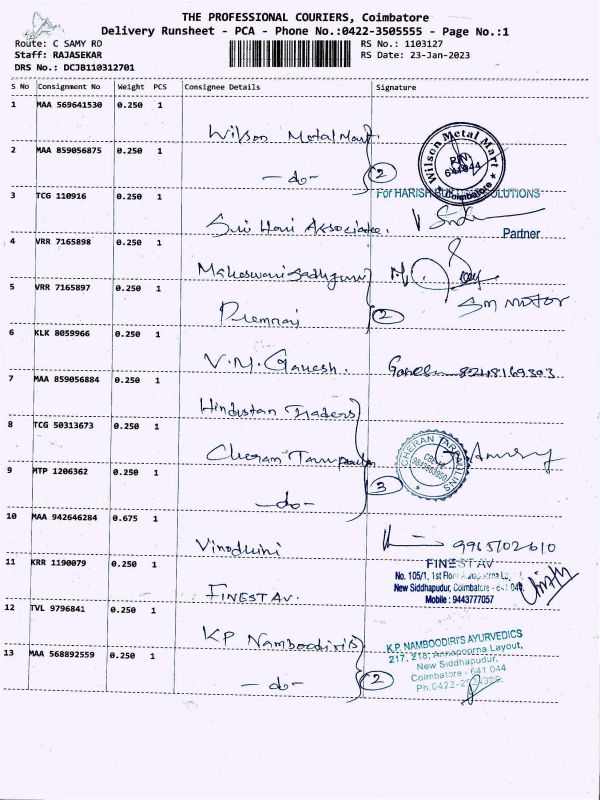 THE PROFESSIONAL COURIERS, Coimbatore
Delivery Runsheet - PCA - Phone No.:0422-3505555 - Page No.:1
Route: C SAMY RD
RS No.: 1103127
Staff: RAJASEKAR
RS Date: 23-Jan-2023
DRS No.: DCJB110312701
S No Consignment No Weight PCS Consignee Details Signature
1 MAA 569641530 0.250 1
Wilson Metal Mart
Wilson Metal Mart
PIN
641044
Coimbatore
2 MAA 859056875 0.250 1
- do - 2
For HARISH SOLUTIONS
3 TCG 110916 0.250 1
Sri Hari Associates.
Partner
4 VRR 7165898 0.250 1
Maheswari Sadhguru
5 VRR 7165897 0.250 1
Sm motor
Premraj 2
6 KLK 8059966 0.250 1
V.M. Ganesh. Ganesh 8248169303
7 MAA 859056884 0.250 1
Hindustan Traders
8 TCG 50313673 0.250 1
Cheran Tarpaulin
CHERAN TARPAULINS
9 MTP 1206362 0.250 1
- do - 3
10 MAA 942646284 0.675 1
Vinodhini 9965702610
11 KRR 1190079 0.250 1
FINEST AV
No. 105/1, 1st Floor Annapoorna
New Siddhapudur, Coimbatore - 641 044.
Mobile : 9443777057
FINEST AV.
12 TVL 9796841 0.250 1
KP Namboodiri's
K.P. NAMBOODIRI'S AYURVEDICS
217, 218, Annapoorna Layout,
New Siddhapudur,
Coimbatore - 641 044
Ph.0422-
13 MAA 568892559 0.250 1
- do - 2